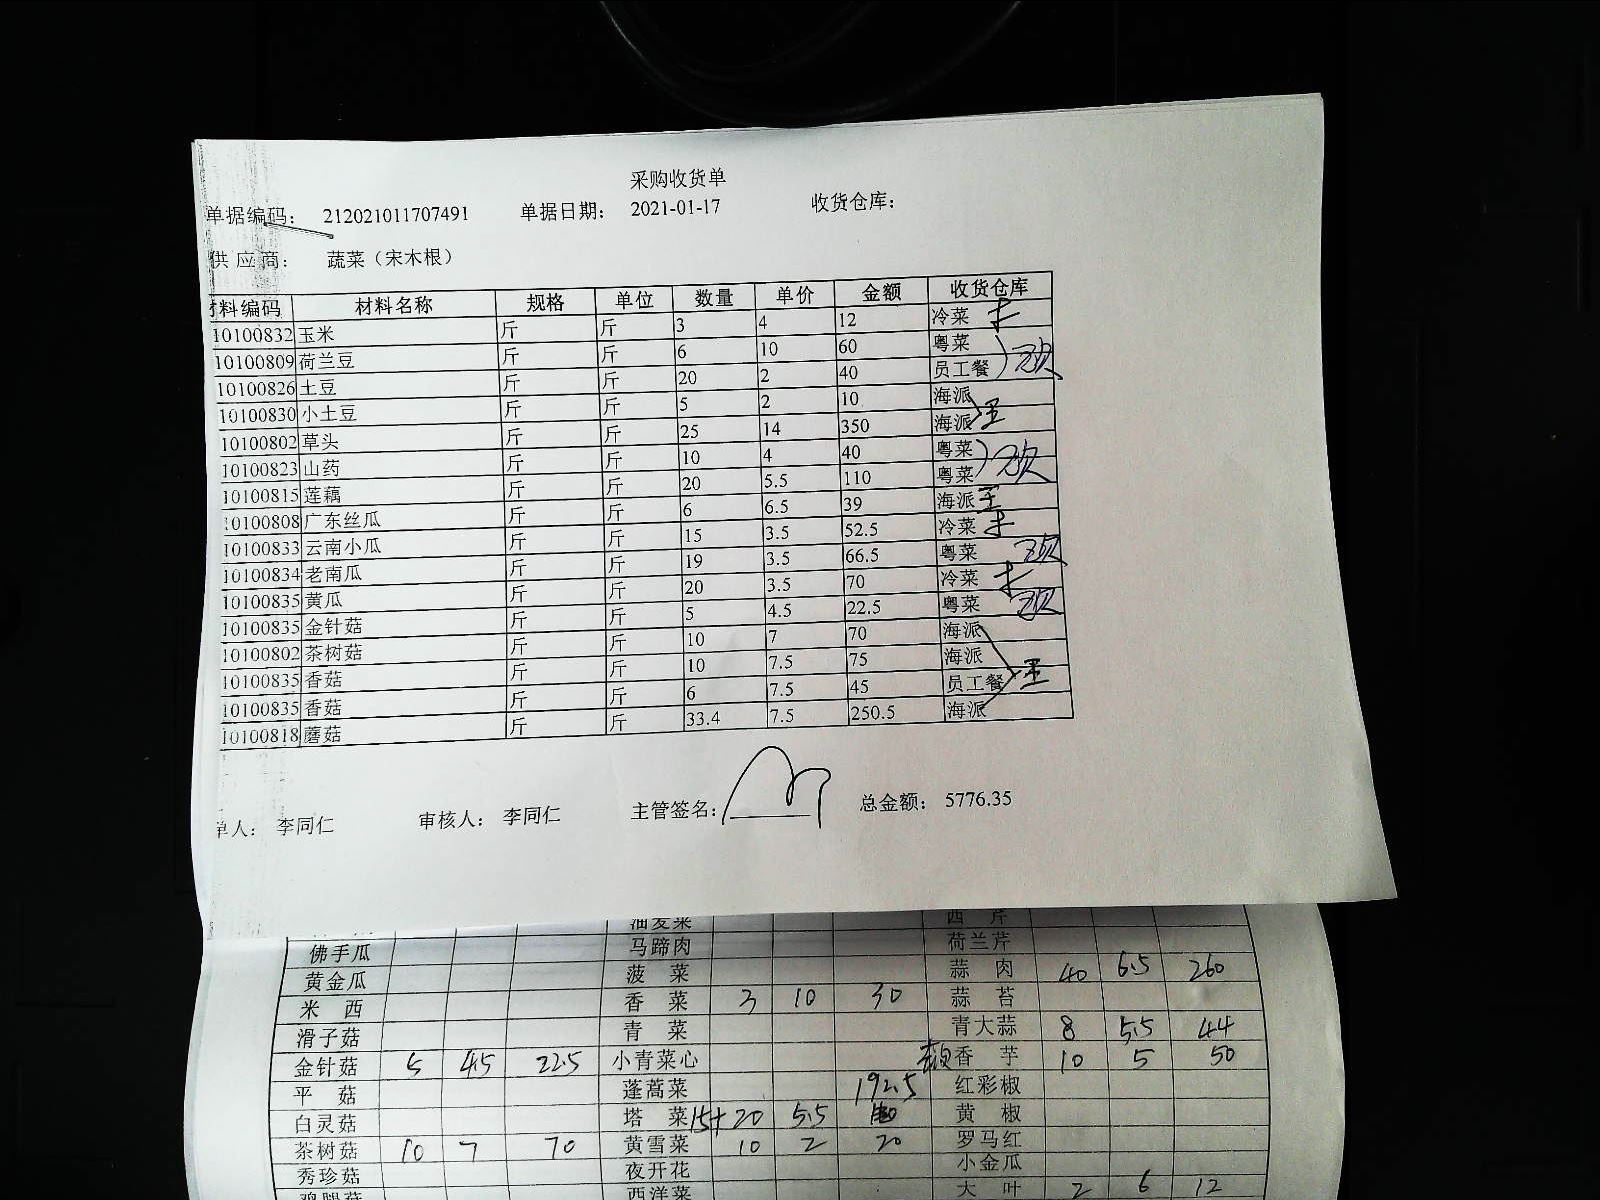 采购收货单
单据编码: 212021011707491 单据日期: 2021-01-17 收货仓库:
供应商: 蔬菜（宋木根）
材料编码 材料名称 规格 单位 数量 单价 金额 收货仓库
10100832 玉米 斤 斤 3 4 12 冷菜
10100809 荷兰豆 斤 斤 6 10 60 粤菜
10100826 土豆 斤 斤 20 2 40 员工餐
10100830 小土豆 斤 斤 5 2 10 海派
10100802 草头 斤 斤 25 14 350 海派
10100823 山药 斤 斤 10 4 40 粤菜
10100815 莲藕 斤 斤 20 5.5 110 粤菜
10100808 广东丝瓜 斤 斤 6 6.5 39 海派
10100833 云南小瓜 斤 斤 15 3.5 52.5 冷菜
10100834 老南瓜 斤 斤 19 3.5 66.5 粤菜
10100835 黄瓜 斤 斤 20 3.5 70 冷菜
10100835 金针菇 斤 斤 5 4.5 22.5 粤菜
10100802 茶树菇 斤 斤 10 7 70 海派
10100835 香菇 斤 斤 10 7.5 75 海派
10100835 香菇 斤 斤 6 7.5 45 员工餐
10100818 蘑菇 斤 斤 33.4 7.5 250.5 海派
单人: 李同仁 审核人: 李同仁 主管签名: 总金额: 5776.35
油麦菜 西芹
佛手瓜 马蹄肉 荷兰芹
黄金瓜 菠菜 蒜肉 40 6.5 260
米西 香菜 3 10 30 蒜苔
滑子菇 青菜 青大蒜 8 5.5 44
金针菇 5 4.5 22.5 小青菜心 香芋 10 5 50
平菇 蓬蒿菜 192.5 红彩椒
白灵菇 塔菜 15+20 5.5 黄椒
茶树菇 10 7 70 黄雪菜 10 2 20 罗马红
秀珍菇 夜开花 小金瓜
西洋菜 大叶 2 6 12